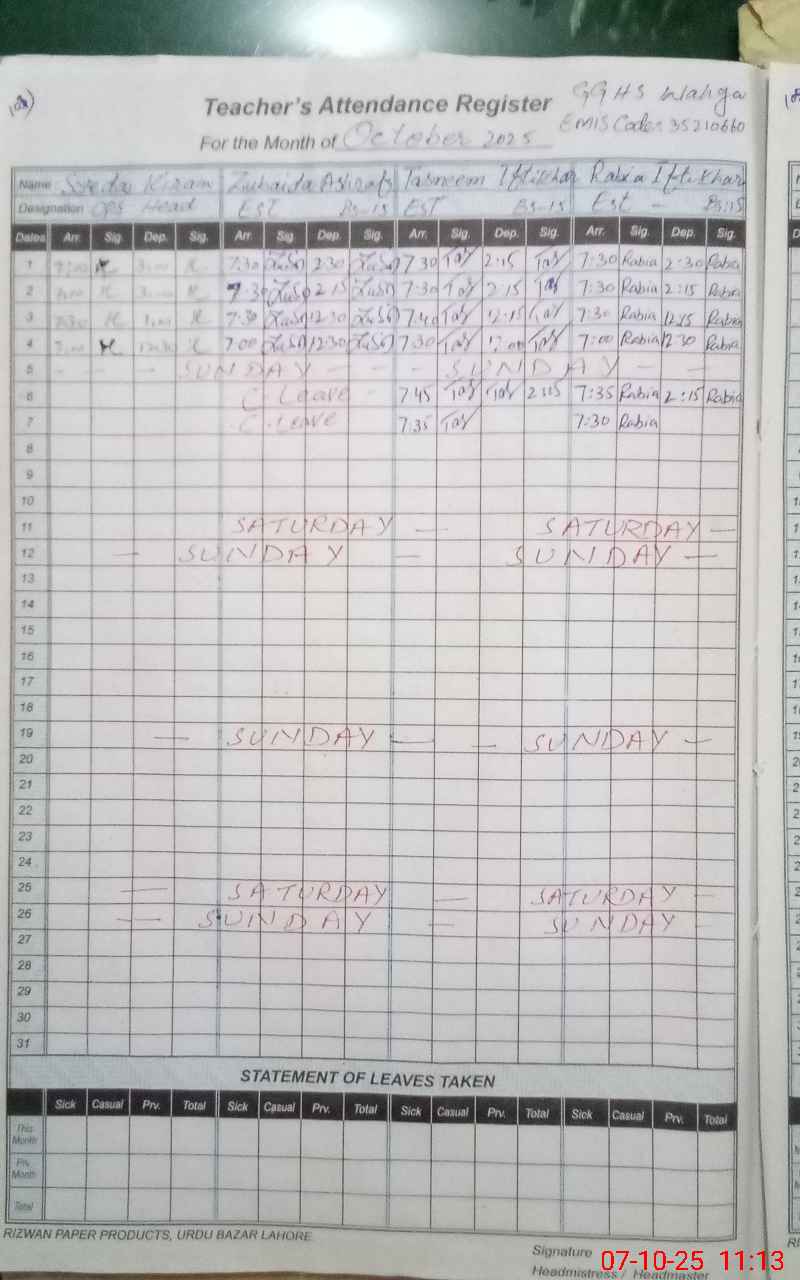 Teacher's Attendance Register GGHS Wahga
For the Month of October 2025 EMIS Code: 35210660
Name Syeda Kiran Zubaida Ashraf Tasneem Iftikhar Rabia Iftikhar
Designation Head EST Bs-15 EST Bs-15 Est - Bs:15
Dates Arr. Sig. Dep. Sig. Arr. Sig. Dep. Sig. Arr. Sig. Dep. Sig. Arr. Sig. Dep. Sig.
1 7:30 2:30 7:30 2:15 7:30 Rabia 2:30 Rabia
2 7:30 2:15 7:30 2:15 7:30 Rabia 2:15 Rabia
3 7:30 12:30 7:40 12:15 7:30 Rabia 12:15 Rabia
4 7:00 12:30 7:30 7:00 Rabia 12:30 Rabia
5 - - - SUNDAY - - - SUNDAY - -
6 C Leave - 7:45 7:35 Rabia 2:15 Rabia
7 C. Leave 7:35 7:30 Rabia
8
9
10
11 SATURDAY — SATURDAY —
12 — SUNDAY — SUNDAY —
13
14
15
16
17
18
19 — SUNDAY — — SUNDAY —
20
21
22
23
24
25 — SATURDAY — SATURDAY —
26 — SUNDAY — SUNDAY —
27
28
29
30
31
STATEMENT OF LEAVES TAKEN
Sick Casual Prv. Total Sick Casual Prv. Total Sick Casual Prv. Total Sick Casual Prv. Total
This Month
Prv. Month
Total
RIZWAN PAPER PRODUCTS, URDU BAZAR LAHORE
Signature
Headmistress / Headmaster
07-10-25 11:13